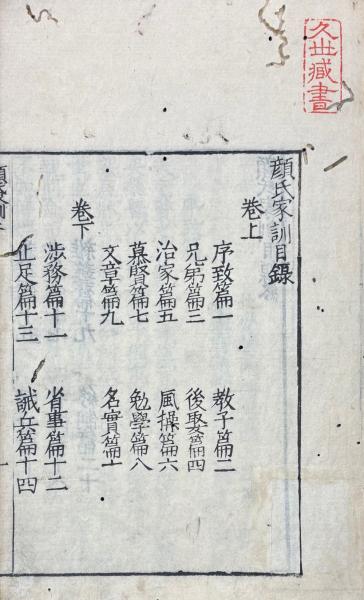 久世藏書
顔氏家訓目録
卷上
序致篇一
教子篇二
兄弟篇三
後娶篇四
治家篇五
風操篇六
慕賢篇七
勉學篇八
文章篇九
名實篇十
卷下
涉務篇十一
省事篇十二
止足篇十三
誡兵篇十四